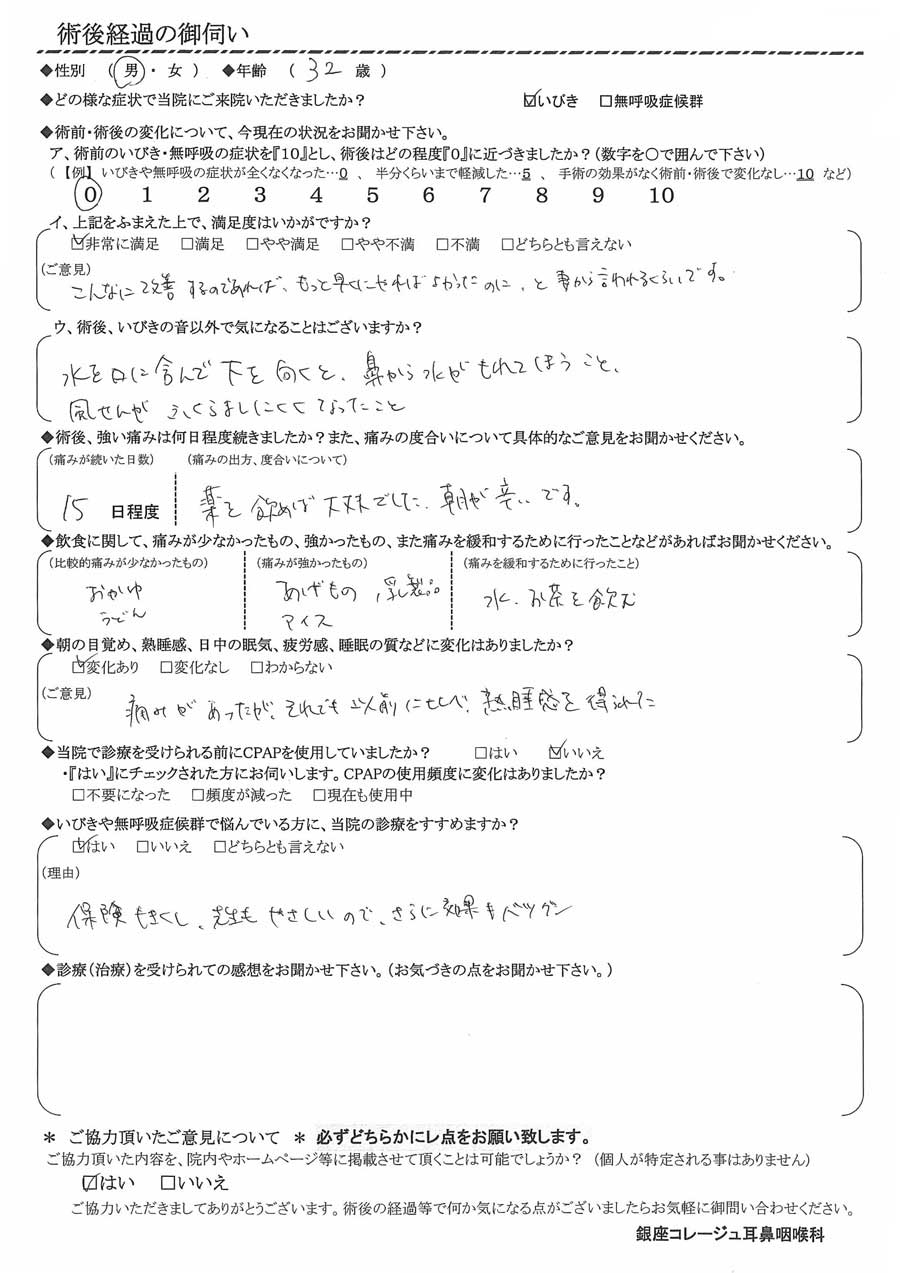 術後経過の御伺い
◆性別 （ 男 ・ 女 ） ◆年齢 （ 32 歳 ）
◆どの様な症状で当院にご来院いただきましたか？ ☑いびき □無呼吸症候群
◆術前・術後の変化について、今現在の状況をお聞かせ下さい。
ア、術前のいびき・無呼吸の症状を『10』とし、術後はどの程度『0』に近づきましたか？（数字を○で囲んで下さい）
（【例】いびきや無呼吸の症状が全くなくなった…0 、 半分くらいまで軽減した…5 、 手術の効果がなく術前・術後で変化なし…10 など）
0 1 2 3 4 5 6 7 8 9 10
イ、上記をふまえた上で、満足度はいかがですか？
☑非常に満足 □満足 □やや満足 □やや不満 □不満 □どちらとも言えない
(ご意見)
こんなに改善するのであれば、もっと早くにやればよかったのに、と妻から言われるくらいです。
ウ、術後、いびきの音以外で気になることはございますか？
水を口に含んで下を向くと、鼻から水がもれてしまうこと、
風せんがふくらましにくくなったこと
◆術後、強い痛みは何日程度続きましたか？また、痛みの度合いについて具体的なご意見をお聞かせください。
（痛みが続いた日数） （痛みの出方、度合いについて）
15 日程度 薬を飲めば大丈夫でした、朝が辛いです。
◆飲食に関して、痛みが少なかったもの、強かったもの、また痛みを緩和するために行ったことなどがあればお聞かせください。
（比較的痛みが少なかったもの） （痛みが強かったもの） （痛みを緩和するために行ったこと）
おかゆ あげもの 乳製品 水、お茶を飲む
うどん アイス
◆朝の目覚め、熟睡感、日中の眠気、疲労感、睡眠の質などに変化はありましたか？
☑変化あり □変化なし □わからない
(ご意見)
痛みがあったが、それでも以前に比べ、熟睡感を得られた
◆当院で診療を受けられる前にCPAPを使用していましたか？ □はい ☑いいえ
・『はい』にチェックされた方にお伺いします。CPAPの使用頻度に変化はありましたか？
□不要になった □頻度が減った □現在も使用中
◆いびきや無呼吸症候群で悩んでいる方に、当院の診療をすすめますか？
☑はい □いいえ □どちらとも言えない
(理由)
保険もきくし、先生もやさしいので、さらに効果もバツグン
◆診療（治療）を受けられての感想をお聞かせ下さい。（お気づきの点をお聞かせ下さい。）
＊ ご協力頂いたご意見について ＊ 必ずどちらかにレ点をお願い致します。
ご協力頂いた内容を、院内やホームページ等に掲載させて頂くことは可能でしょうか？ （個人が特定される事はありません）
☑はい □いいえ
ご協力いただきましてありがとうございます。術後の経過等で何か気になる点がございましたらお気軽に御問い合わせください。
銀座コレージュ耳鼻咽喉科